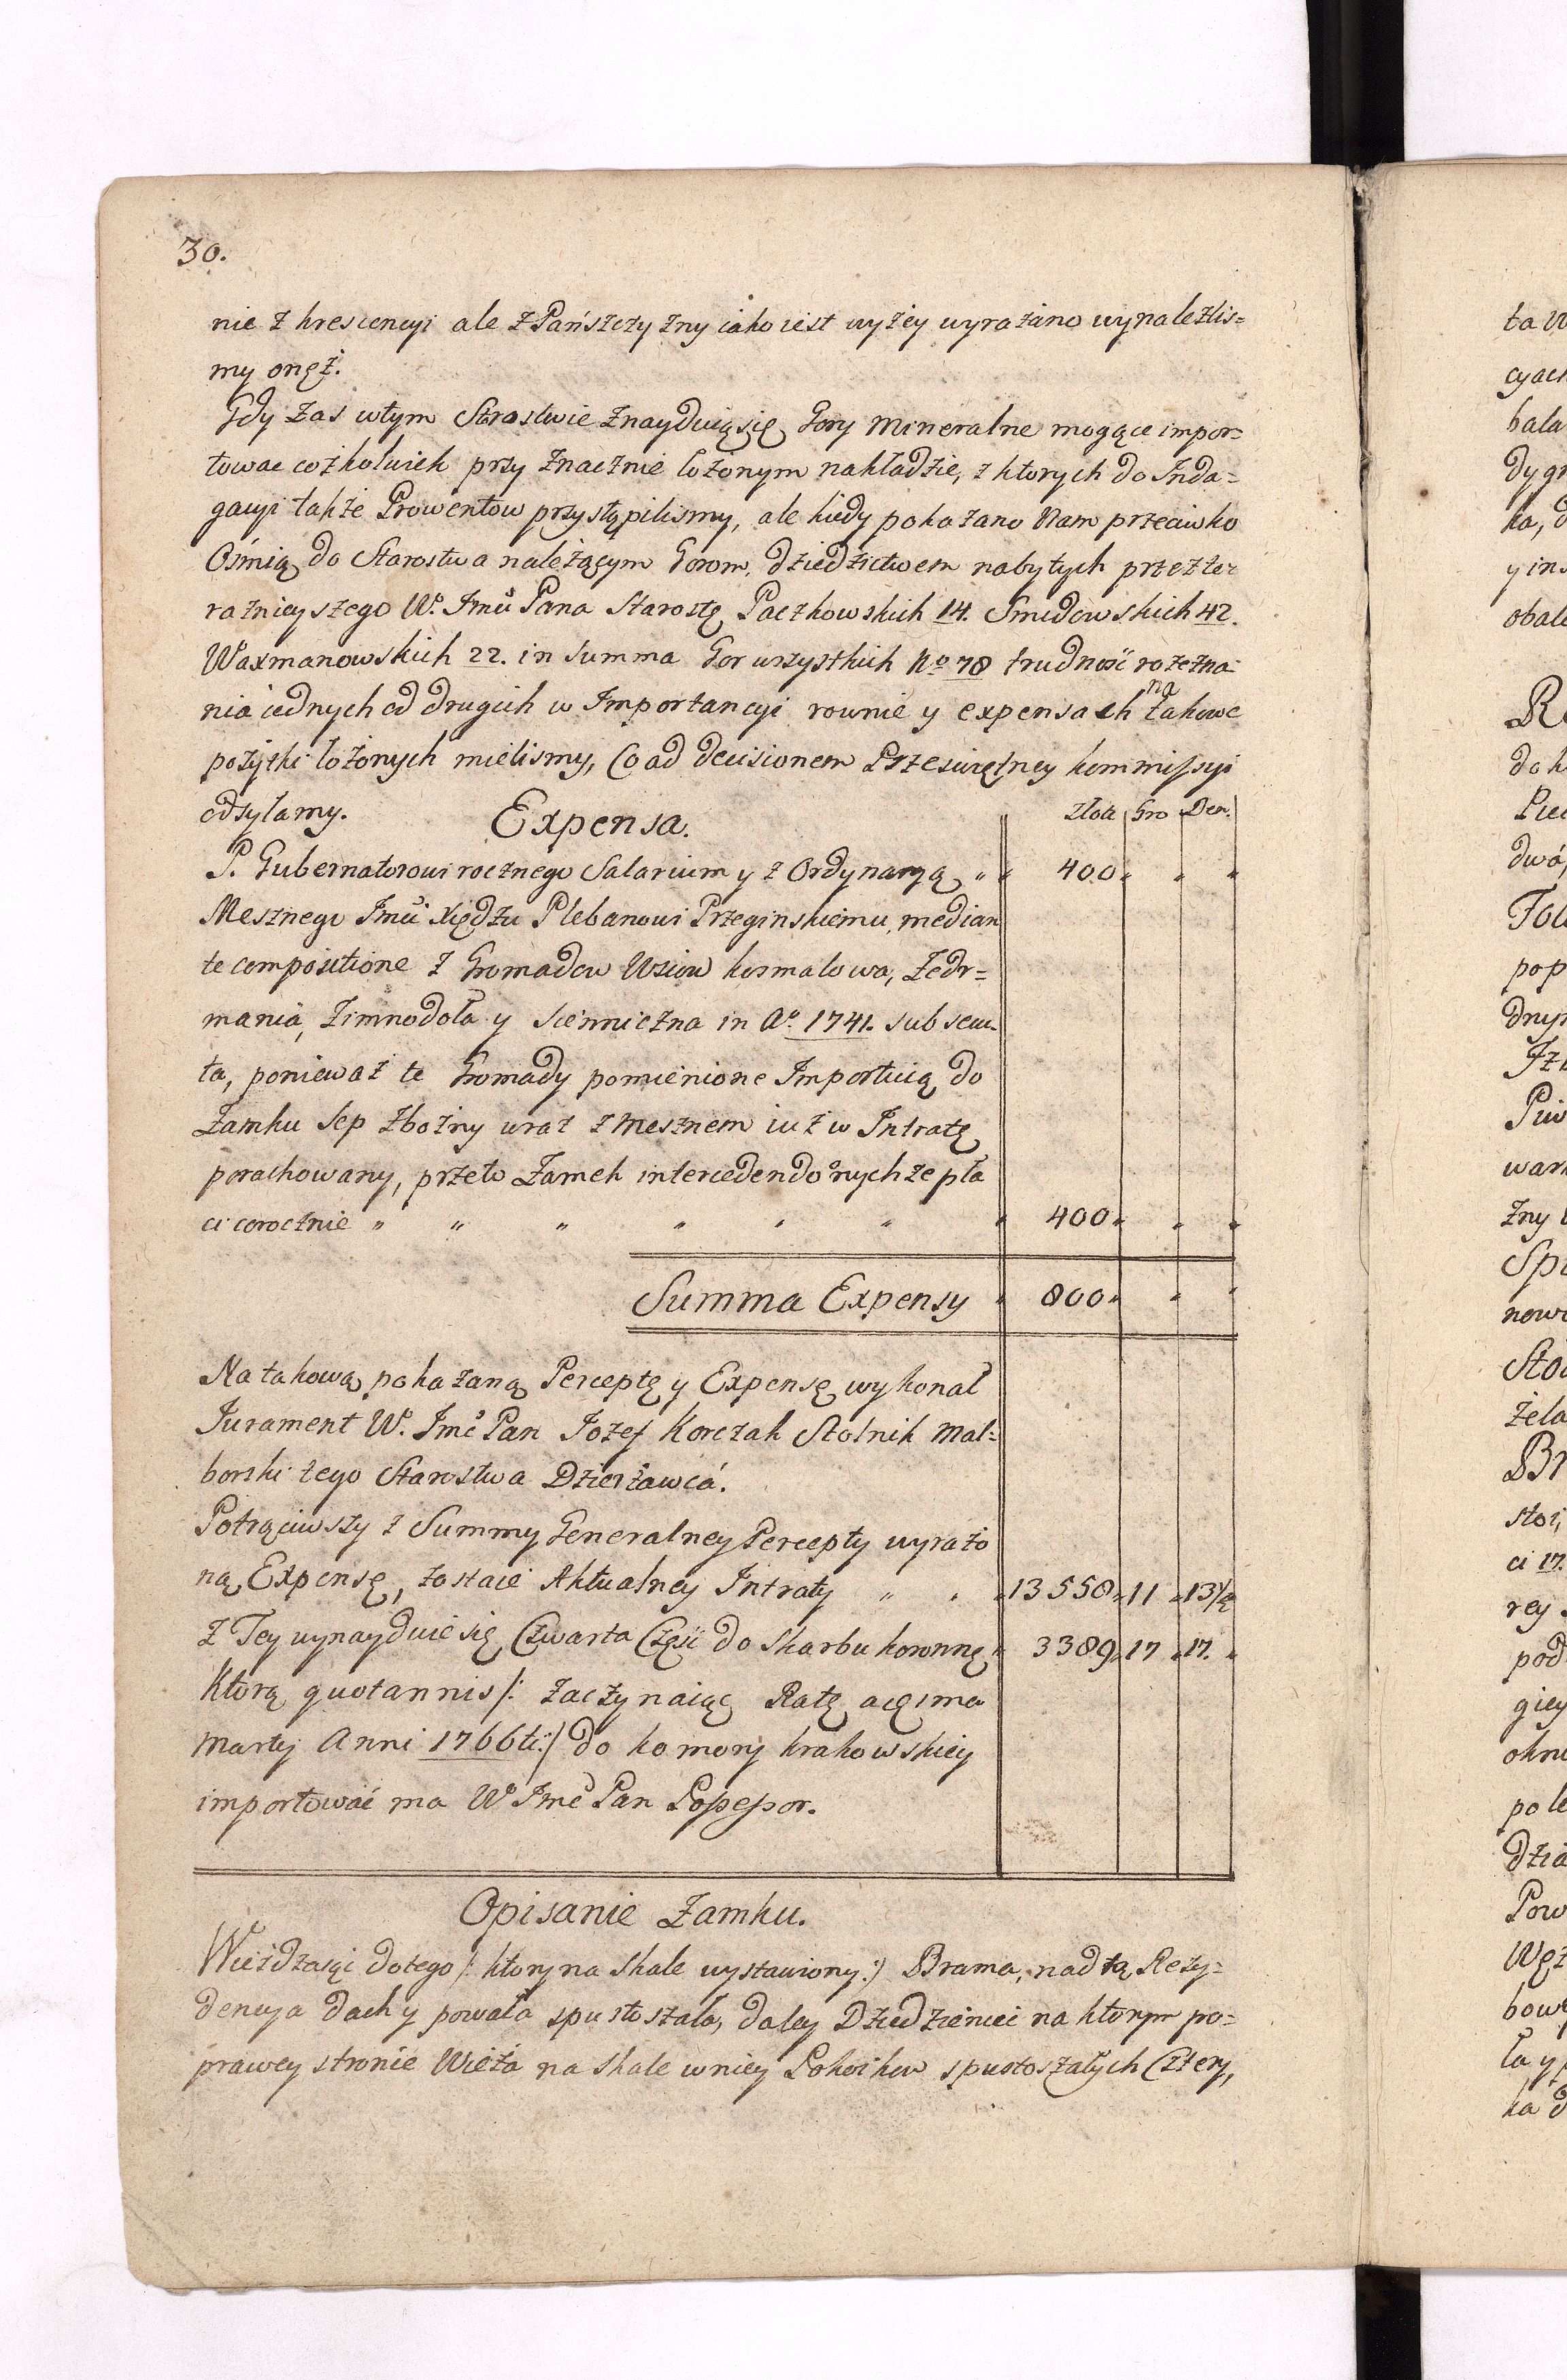 30.
nie z krescencyi ale z Pańszczyzny iako iest wyżey wyrażano wynalezlis=
my onęż.
Gdy zas wtym Starostwie znayduią się Gory mineralne mogące impor=
towac cożkolwiek przy znacznie łożonym nakładzie, z ktorych do Inda=
gacyi także Prowentow przystąpilismy, ale kiedy pokazano Nam przeciwko
Ośmią do Starostwa należącym Gorom, dziedzictwem nabytych przez ter
raznieyszego W. Jmci Pana Starostę Paczkowskich 14. Smidowskich 42.
Waxmanowskich 22. in Summa Gor wszystkich No 78 trudność rozezna=
nia iednych od drugich w Importancyi rownie y expensach na takowe
pożytki łożonych mielismy, Co ad decisionem Przeswiętney kommissyi
odsyłamy.
Expensa.
Złote Gro Den.
P. Gubernatorowi rocznego Salarium y z Ordynaryą " " 400 " " "
Mesznego Jmci Xiędzu Plebanowi Przeginskiemu, median
te compositione z Gromadow Wsiow kosmalowa, Zedr=
mania, Zimnodoła y Sienniczna in Ao. 1741. subsecu=
ta, ponieważ te Gromady pomienione Importuią do
Zamku Sep zbożny wraz z mesznem iuż w Intratę
porachowany, przeto Zamek intercedendo onychże pła
ci corocznie " " " " " " " 400 " " "
Summa Expensy " 800 " " "
Na takową pokazaną Perceptę y Expensę wykonał
Jurament W. Jmć Pan Jozef Korczak Stolnik mal=
borski tego Starostwa Dzierżawca.
Potrąciwszy z Summy Generalney Percepty wyrażo
ną Expensę, zostaie Aktualney Intraty " " " 13558 " 11 " 13½
z Tey wynayduie się Czwarta Część do Skarbu koronne " 3389 " 17 " 17. "
Ktorą quotannis /: zaczynaiąc Ratę a
Martij Anni 1766ti :/ do komory krakowskiey
importować ma W Jmć Pan Possessor.
Opisanie Zamku.
Wieżdzaiąc dotego /: ktory na Skale wystawiony :/ Brama, nad tą Rezy=
dencya dach y powała spustoszała, daley Dziedzieniec na ktorym po=
prawey stronie Wieża na Skale wniey Pokoikow spustoszałych Cztery,